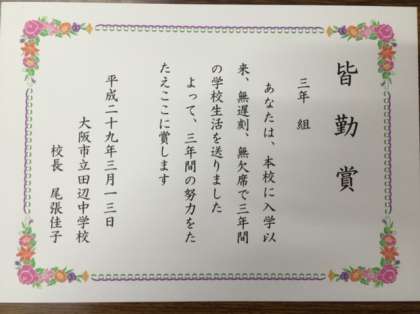 皆勤賞
三年 組
あなたは、本校に入学以
来、無遅刻、無欠席で三年間
の学校生活を送りました
よって、三年間の努力をた
たえここに賞します
平成二十九年三月一三日
大阪市立田辺中学校
校長 尾張佳子